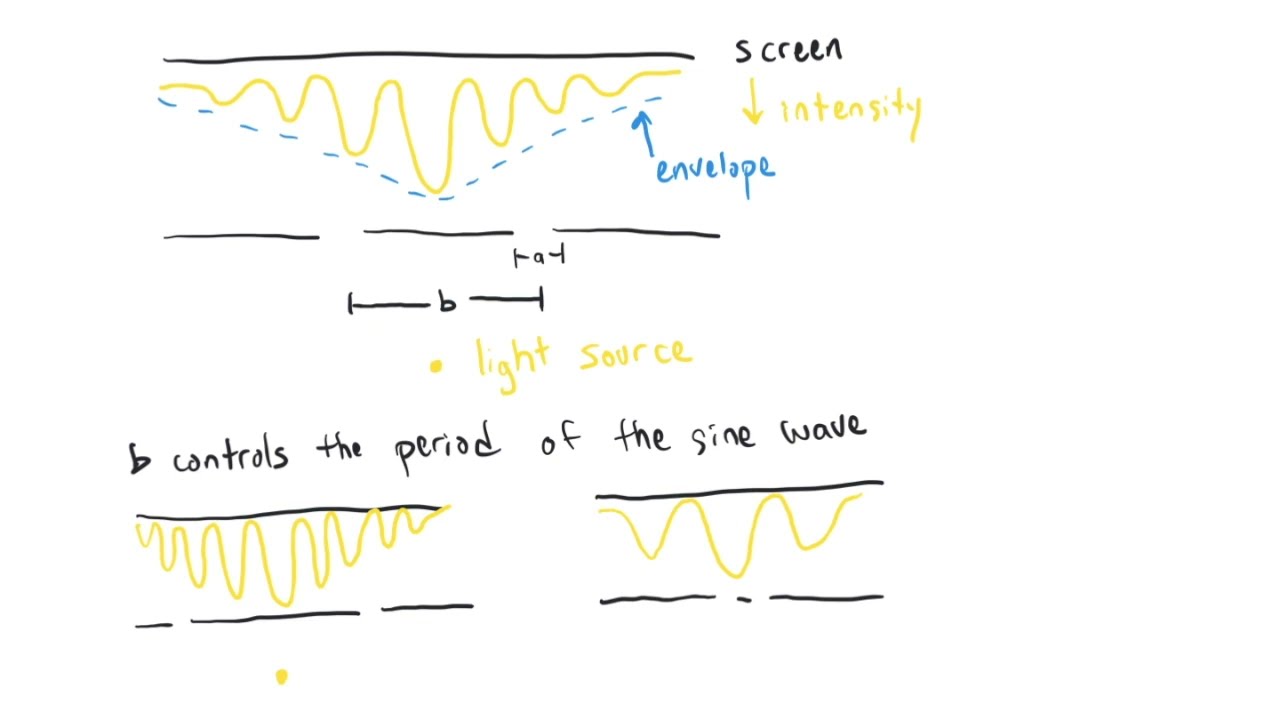 screen
↓ intensity
envelope
a
b
light source
b controls the period of the sine wave